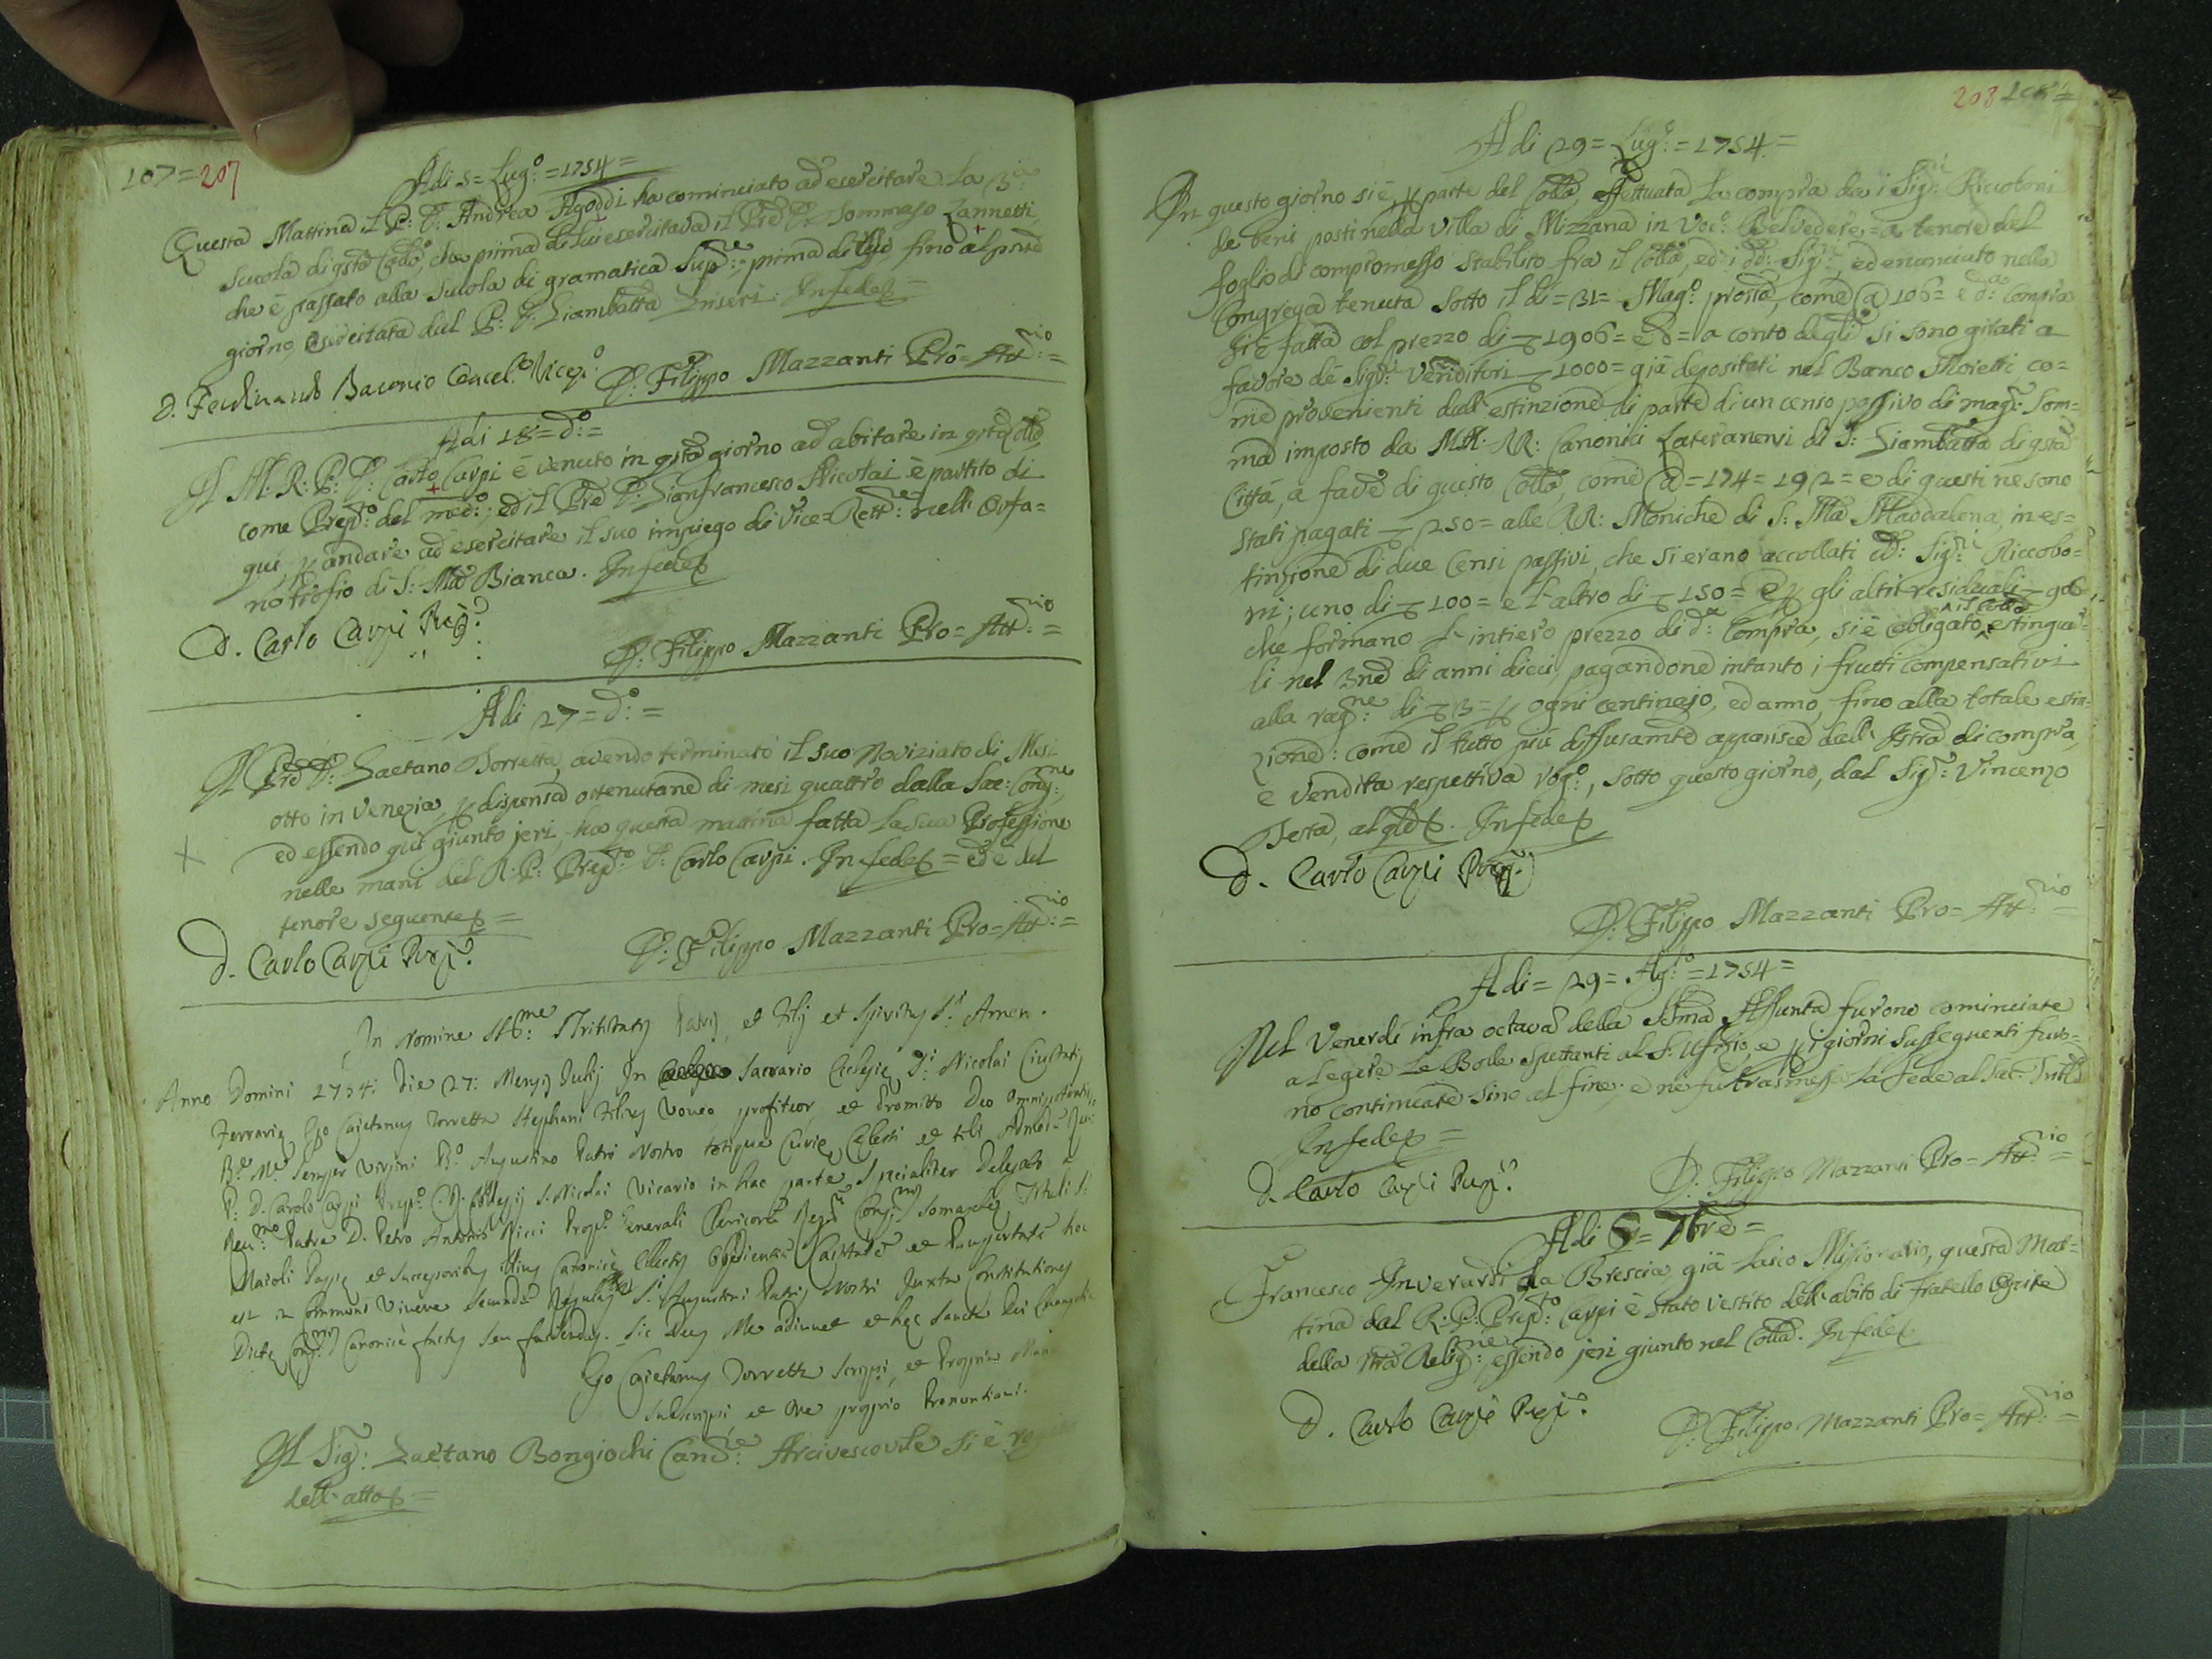 107=207
Adi 5= Lug:º =1754=
Questa Mattina il P: D: Andrea Agoddi ha cominciato ad esercitare la 3:ª
scuola di qsto Collo, che prima di lui esercitava il Pre D: Tommaso Zannetti,
che è passato alla scuola di gramatica Sup:re, prima di lui fino al pnte
giorno esercitata dal P: D: Giambatta Liseri. In fede
D. Ferdinando Baconio Cancel.º Vicep.º
D: Filippo Mazzanti Pro=Att:rio=
Adi 18=d:º=
Il M: R: P: D: Carlo Carpi è venuto in qsto giorno ad abitare in qsto Collo
come Prep:to del med:º, ed il Pre D: Gianfrancesco Nicolai è partito di
qui, p andare ad esercitare il suo impiego di Vice=Rett:re nell' Orfa=
notrofio di S: Ma Bianca. In fede
D. Carlo Carpi Prep.º
D: Filippo Mazzanti Pro=Att:rio=
Adi 27=d:º=
Il Pre D: Gaetano Torretta, avendo terminato il suo Noviziato di Mesi
otto in Venezia, p dispensa ottenutane di mesi quattro dalla Sac: Cong:ne,
ed essendo qui giunto jeri, ha questa mattina fatta la sua Professione
nelle mani del R: P: Prep:to D: Carlo Carpi. In fede = ed è del
tenore seguente =
D. Carlo Carpi Prep.º
D: Filippo Mazzanti Pro=Att:rio=
In Nomine SS:me Trinitatis Patris, et Filij et Spiritus S.ti Amen.
Anno Domini 1754: Die 27: Mensis Julij In Sacrario Eclesię S.i Nicolai Ciuitatis
Ferrarię Ego Cajetanus Torretta Stephani Filius Voveo profiteor, et Promitto Deo Omnipotenti,
B.e M.e Semper Virgini B.º Augustino Patri Nostro totique Curię Celesti et tibi
P: D. Carolo Carpi Prep.º Collegij S. Nicolai Vicario in hac parte Specialiter Delegato a
Reu:mo Patre D. Petro Antonio Ricci Prep.º Generali Clericorū Reg. Cong:nis Somaschę, Tituli S:
Maioli Papię et Successoribus illius Canonicè Electis Obedientiā Castitatē et Paupertatē hoc
est in Communi Vivere Secundū Regulā S.i Augustini Patris Nostri Juxta Constitutiones
Dictę Cong:nis Canonicè factas seu faciendas. Sic Deus Me adiuuet et hęc Sancta Dei Euangelia
Ego Cajetanus Torretta Scripsi, et Propria Manu
Subscripsi et Ore proprio Pronuntiaui.
Il Sig: Gaetano Bongiochi Canc:re Arcivescovile si è
dell' atto =
208
Adi 29= Lug:º =1754=
In questo giorno si è, p parte del Collo, effettuata la compra da i Sig:ri Riccoboni
de beni posti nella Villa di Mizzana in Voc:º Belvedere = a tenore del
foglio di compromesso stabilito fra il Collo, ed i dd: Sig:ri, ed enunciato nella
Congrega tenuta sotto il di =31= Mag:º prossto, come @ 106= e d:a compra
si è fatta col prezzo di 1906= e = a conto degli si sono girati a
favore de Sig:ri Venditori 1000= già depositati nel Banco Moretti co=
me provenienti dall' estinzione di parte di un censo passivo di mag:r som=
ma imposto da MM: RR: Canonici Lateranensi di S: Giambatta di qsta
Città, a fave di questo Collo, come @=174=192= e di questi ne sono
stati pagati 250= alle RR: Moniche di S: Ma Maddalena, in es=
tinzione di due Censi passivi, che si erano accollati dd: Sig:ri Riccobo=
ni; uno di 100= e l' altro di 150= E p gli altri residuali 906
che formano l' intiero prezzo di d:a Compra, si è obligato il Collo estinguer=
li nel 3ne di anni dieci, pagandone intanto i frutti compensativi
alla rag:ne di 3= p ogni centinajo, ed anno, fino alla totale estin=
zione: come il tutto più diffusamte apparisce dall' Istro di compra,
e vendita respettiva rog:º, sotto questo giorno, dal Sig:r Vincenzo
Testa, al qle. In fede
D. Carlo Carpi Prep.º
D: Filippo Mazzanti Pro=Att:rio=
Adi=29= Ag:º=1754=
Nel Venerdi infra octava della SSma Assunta furono cominciate
a legere le Bolle spettanti al S: Ufizio, e p i giorni susseguenti furo=
no continuate sino al fine; e ne fu trasmessa la fede al Sac: Tribl
In fede =
D. Carlo Carpi Prep.º
D: Filippo Mazzanti Pro=Att:rio=
Adi = 7bre=
Francesco Inverardi da Brescia, già Laico Missionario, questa Mat=
tina dal R: P: Prep:to Carpi è stato vestito dell' abito di Fratello Ospite
della nra Relig:ne, essendo jeri giunto nel Collo. In fede
D. Carlo Carpi Prep.º
D: Filippo Mazzanti Pro=Att:rio=